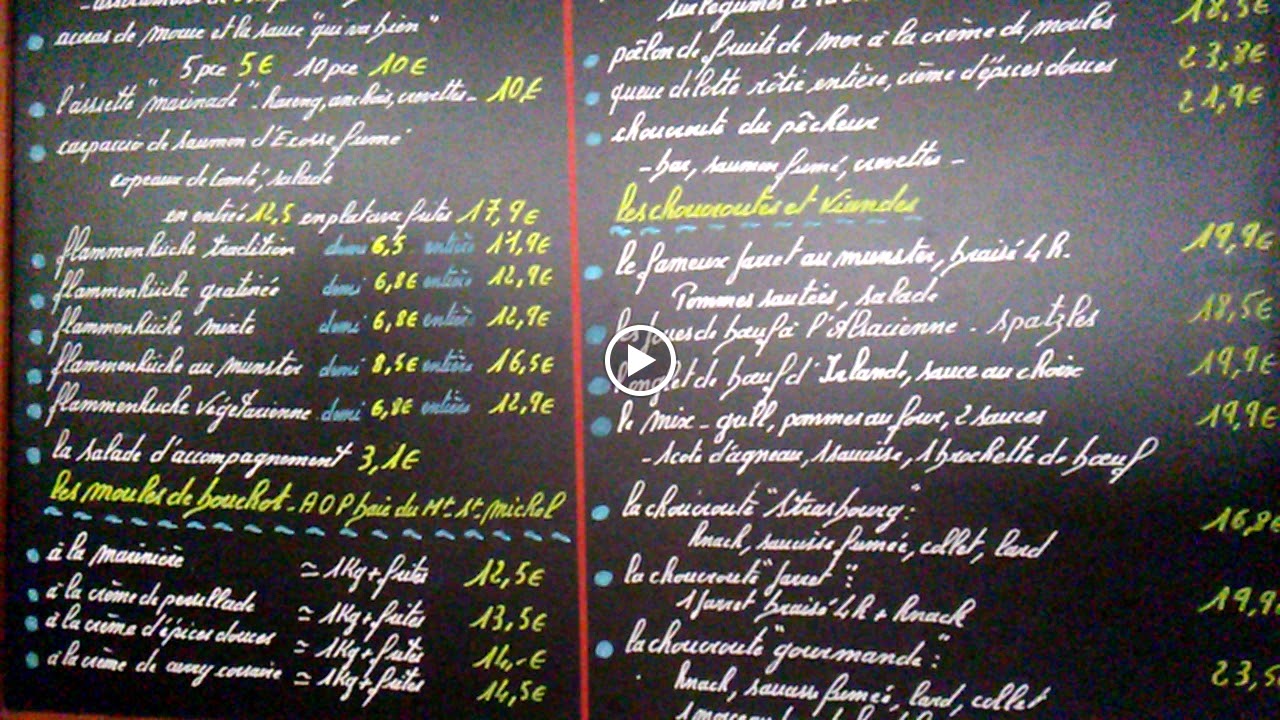 acras de morue et la sauce "qui va bien"
5 pce 5€ 10 pce 10€
l'assiette "marinade" - hareng, anchois, crevettes - 10,€
carpaccio de saumon d'Ecosse fumé
copeaux de Comté, salade
en entrée 12,5 en plat avec frites 17,9€
flammenküche tradition demi 6,5 entière 11,9€
flammenküche gratinée demi 6,8€ entière 12,9€
flammenküche mixte demi 6,8€ entière 12,9€
flammenküche au munster demi 8,5€ entière 16,5€
flammenkuche végétarienne demi 6,8€ entière 12,9€
la salade d'accompagnement 3,1€
les moules de bouchot - AOP baie du Mt St michel
à la marinière ≃ 1Kg + frites 12,5€
à la crème de persillade ≃ 1Kg + frites 13,5€
à la crème d'épices douces ≃ 1Kg + frites 14,-€
à la crème de curry corsaire ≃ 1Kg + frites 14,5€
sur légumes à la 18,5€
pôelon de fruits de mer à la crème de moules 23,8€
queue de lotte rôtie, entière, crème d'épices douces 21,9€
choucroute du pêcheur
- bar, saumon fumé, crevettes -
les choucroutes et viandes
le fameux jarret au munster, braisé 4h. 19,9€
Pommes sautées, salade
les joues de bœuf à l'Alsacienne - spatzles 18,5€
l'onglet de bœuf d'Irlande, sauce au choix 19,9€
le mix - grill, pommes au four, 2 sauces 19,9€
- 1 cote d'agneau, 1 saucisse, 1 brochette de bœuf
la choucroute "Strasbourg": 16,8€
knack, saucisse fumée, collet, lard
la choucroute "jarret": 19,9
1 jarret braisé 4h + knack
la choucroute "gourmande": 23,5
knack, saucisse fumée, lard, collet
1 morceau